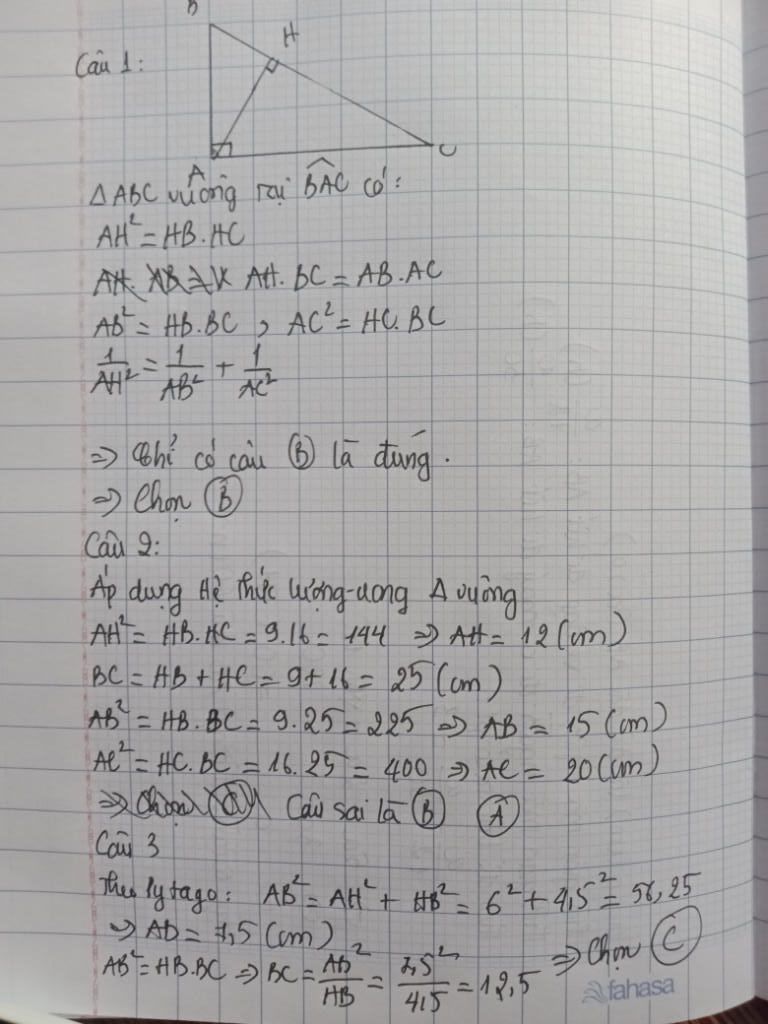 B
H
Câu 1:
A
C
Δ ABC vuông tại BAC có:
AH² = HB.HC
AH.BC = AB.AC
AB² = HB.BC, AC² = HC.BC
1/AH² = 1/AB² + 1/AC²
=> Chỉ có câu B là đúng.
=> Chọn B
Câu 2:
Áp dụng Hệ thức lượng trong Δ vuông
AH² = HB.HC = 9.16 = 144 => AH = 12 (cm)
BC = HB + HC = 9 + 16 = 25 (cm)
AB² = HB.BC = 9.25 = 225 => AB = 15 (cm)
AC² = HC.BC = 16.25 = 400 => AC = 20 (cm)
Câu sai là B A
Câu 3
Theo Pytago: AB² = AH² + HB² = 6² + 4,5² = 56,25
=> AB = 7,5 (cm)
AB² = HB.BC => BC = AB²/HB = 7,5²/4,5 = 12,5 => Chọn C
fahasa